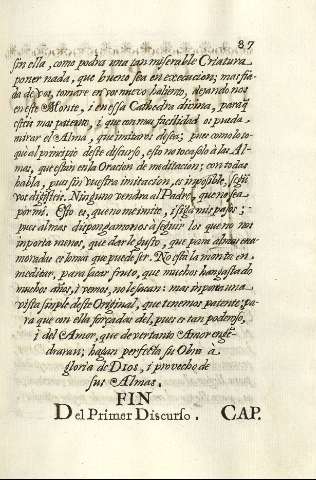 87
sin ella, como podrà una tan miserable Criatura
poner nada, que bueno sea en execucion; mas fia-
da de vos, tomare en vos nuevo haliento, dejando nos
en este Monte, i en essa Cathedra divina, paraq̃
estèis mas patente, i que con mas facilidad os pueda
mirar el Alma, que imitaros desea; pues como lo to-
que al principio deste discurso, esto no toca solo à las Al-
mas, que estan en la Oracion de meditacion; con todas
habla, pues sin vuestra imitacion, es imposible, segũ
vos dijisteis. Ninguno vendra al Padre, que no sea
por mi. Esto es, que no me imite, i siga mis pasos;
pues almas dispongamonos à seguir los que no nos
inporta menos, que darle gusto, que para almas ena-
moradas es lo mas que puede ser. No està la monta en
meditar, para sacar fruto, que muchos han gastado
muchos años, i vemos, no le sacan: mas inporta una
vista simple deste Original, que tenemos patente: pa-
ra que con ella forçadas del, pues es tan poderoso,
i del Amor, que de ver tanto Amor enge-
draran; hagan perfecta su Obra à
gloria de DIOS, i provecho de
sus Almas.
FIN
Del Primer Discurso. CAP.